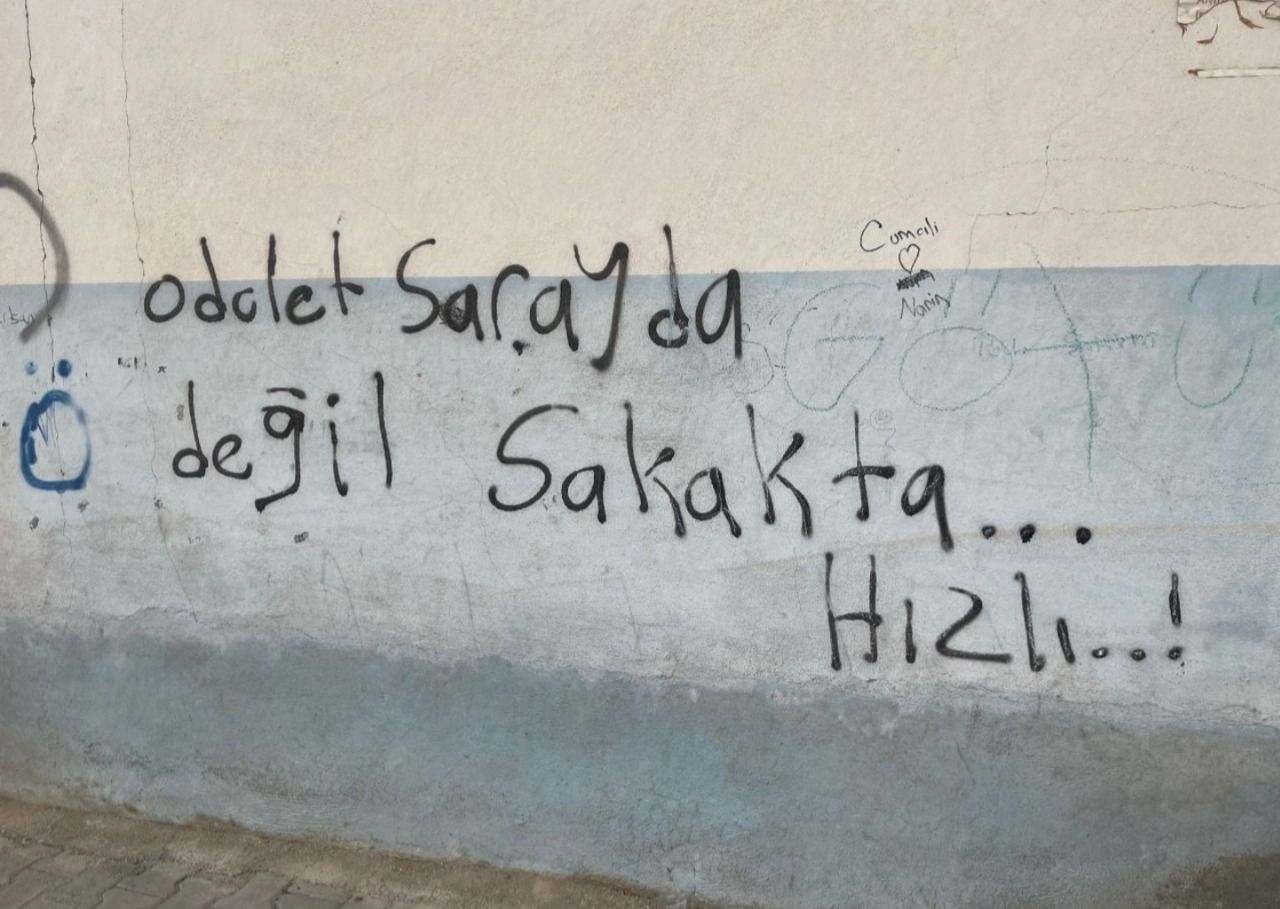 odalet Sarayda
değil Sakakta...
Hızlı...!
Cumali
Narin
Ö